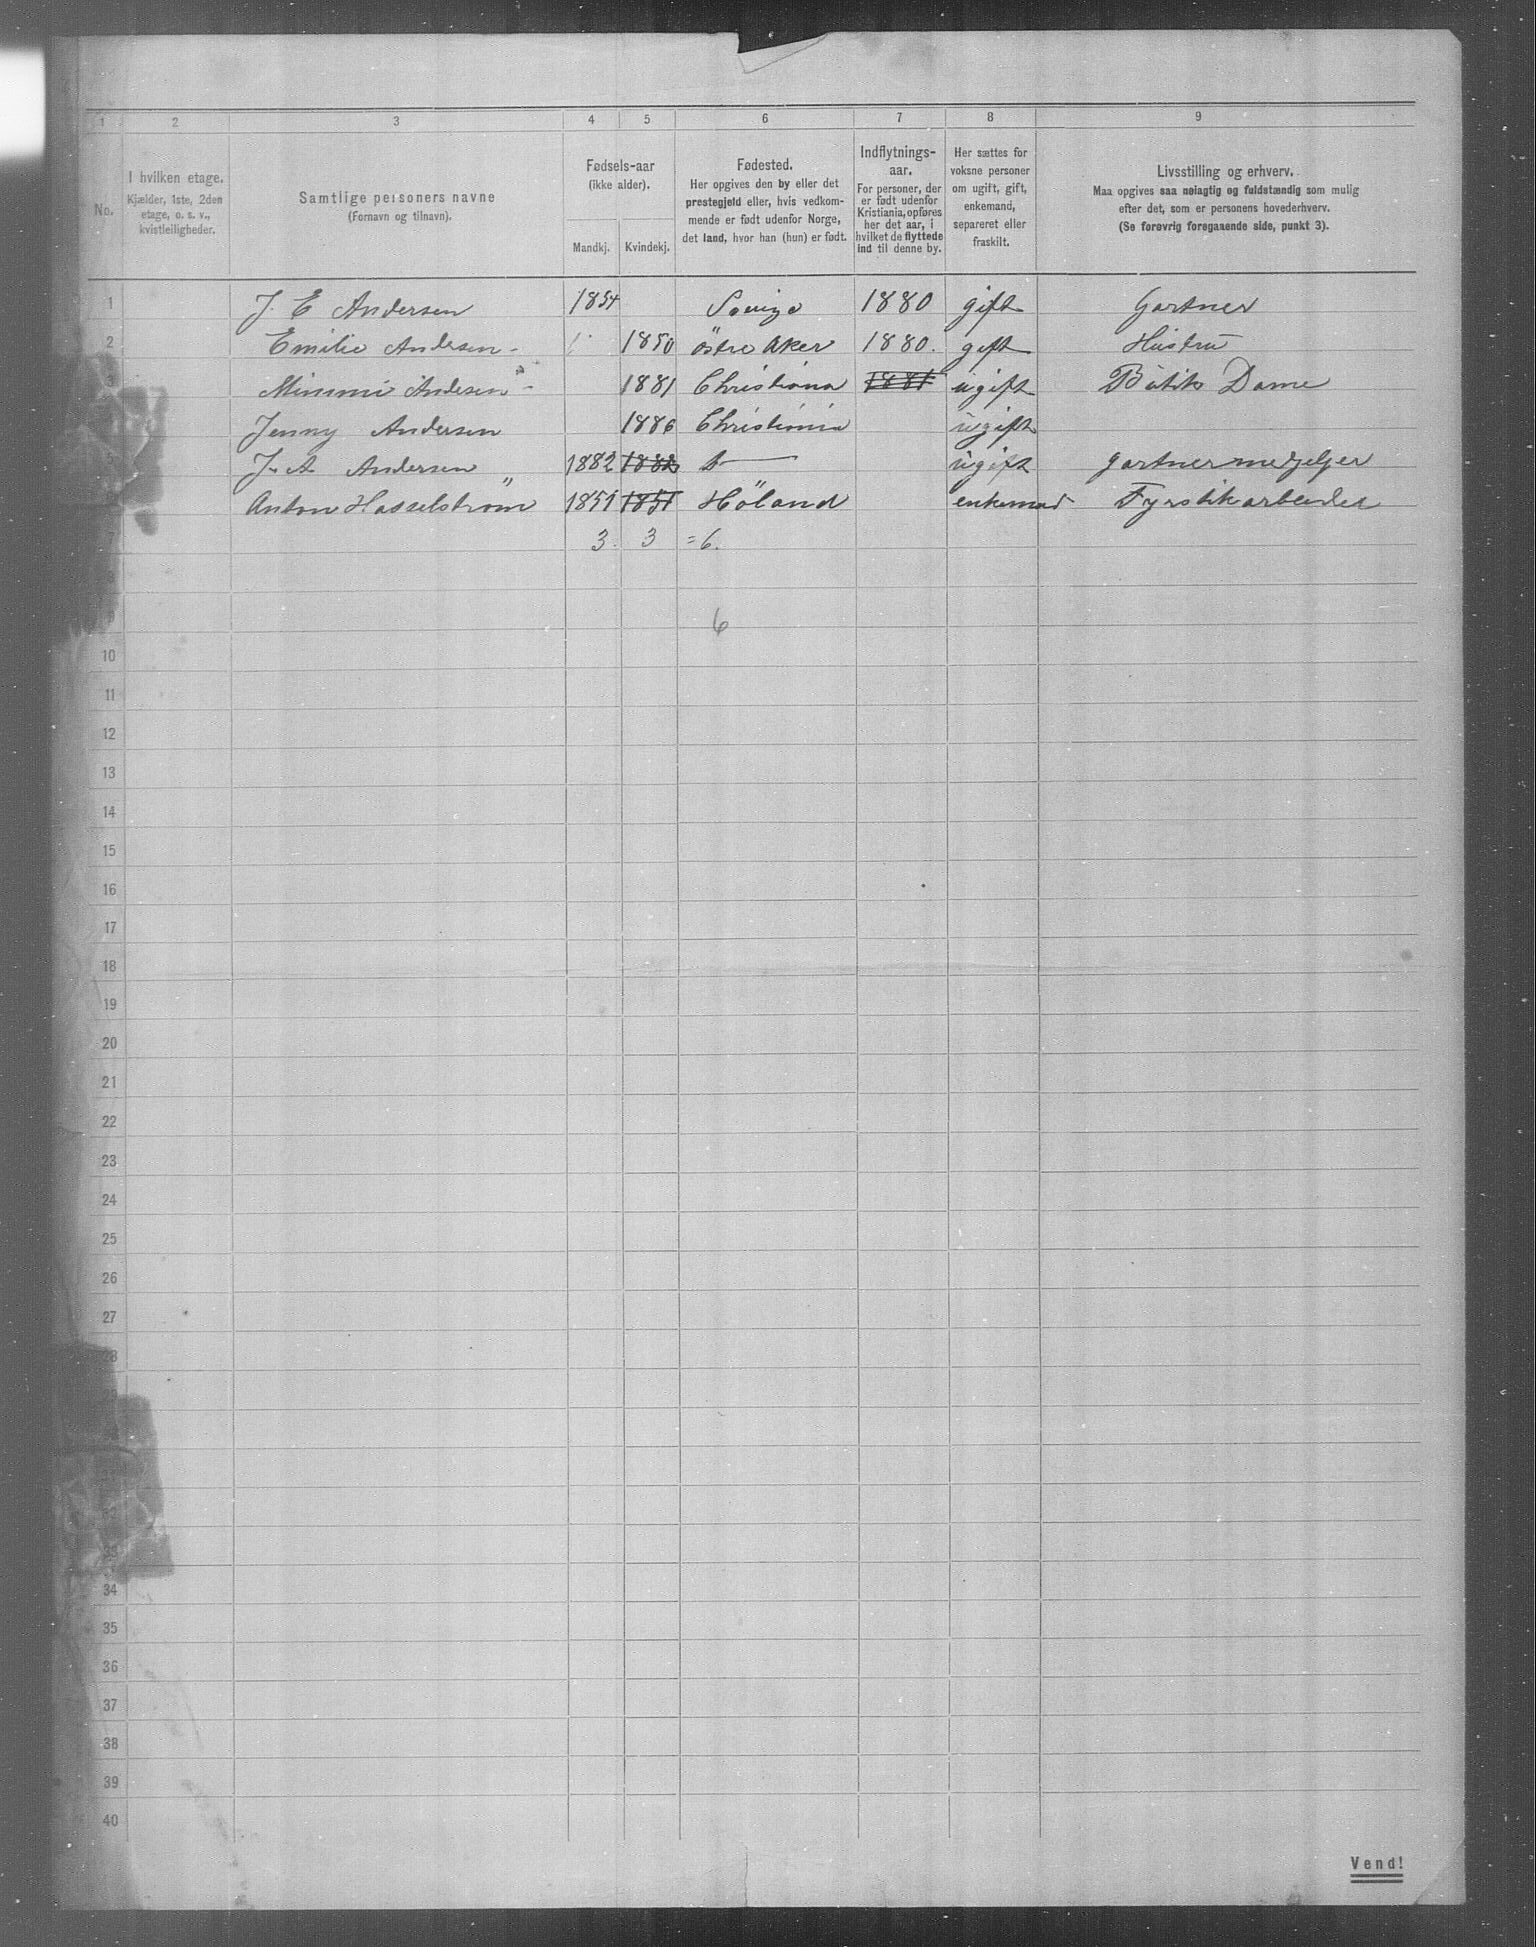 1 2 3 4 5 6 7 8 9
No.
I hvilken etage.
Kjælder, 1ste, 2den
etage, o. s. v.,
kvistleiligheder.
Samtlige personers navne
(Fornavn og tilnavn).
Fødsels-aar
(ikke alder).
Mandkj. Kvindekj.
Fødested.
Her opgives den by eller det
prestegjeld eller, hvis vedkom-
mende er født udenfor Norge,
det land, hvor han (hun) er født.
Indflytnings-
aar.
For personer, der
er født udenfor
Kristiania, opføres
her det aar, i
hvilket de flyttede
ind til denne by.
Her sættes for
voksne personer
om ugift, gift,
enkemand,
separeret eller
fraskilt.
Livsstilling og erhverv.
Maa opgives saa nøiagtig og fuldstændig som mulig
efter det, som er personens hovederhverv.
(Se forøvrig foregaaende side, punkt 3).
1 J. E Andersen 1854 1880 gift Gartner
2 Emilie Andersen - 1850 östre Aker 1880. gift Hustru
3 Mimmi Andersen - 1881 Christiana 1881 ugift Butik Dame
Jenny Andersen 1886 Christinia ugift
5 J. A Andersen 1882 1882 ugift
Anton Hasselström 1851 1851 Höland enkemad Fyrstikarbeider
7 3. 3 = 6.
8
9 6
10
11
12
13
14
15
16
17
18
19
20
21
22
23
24
25
26
27
28
33
34
35
36
37
38
39
40
Vend!